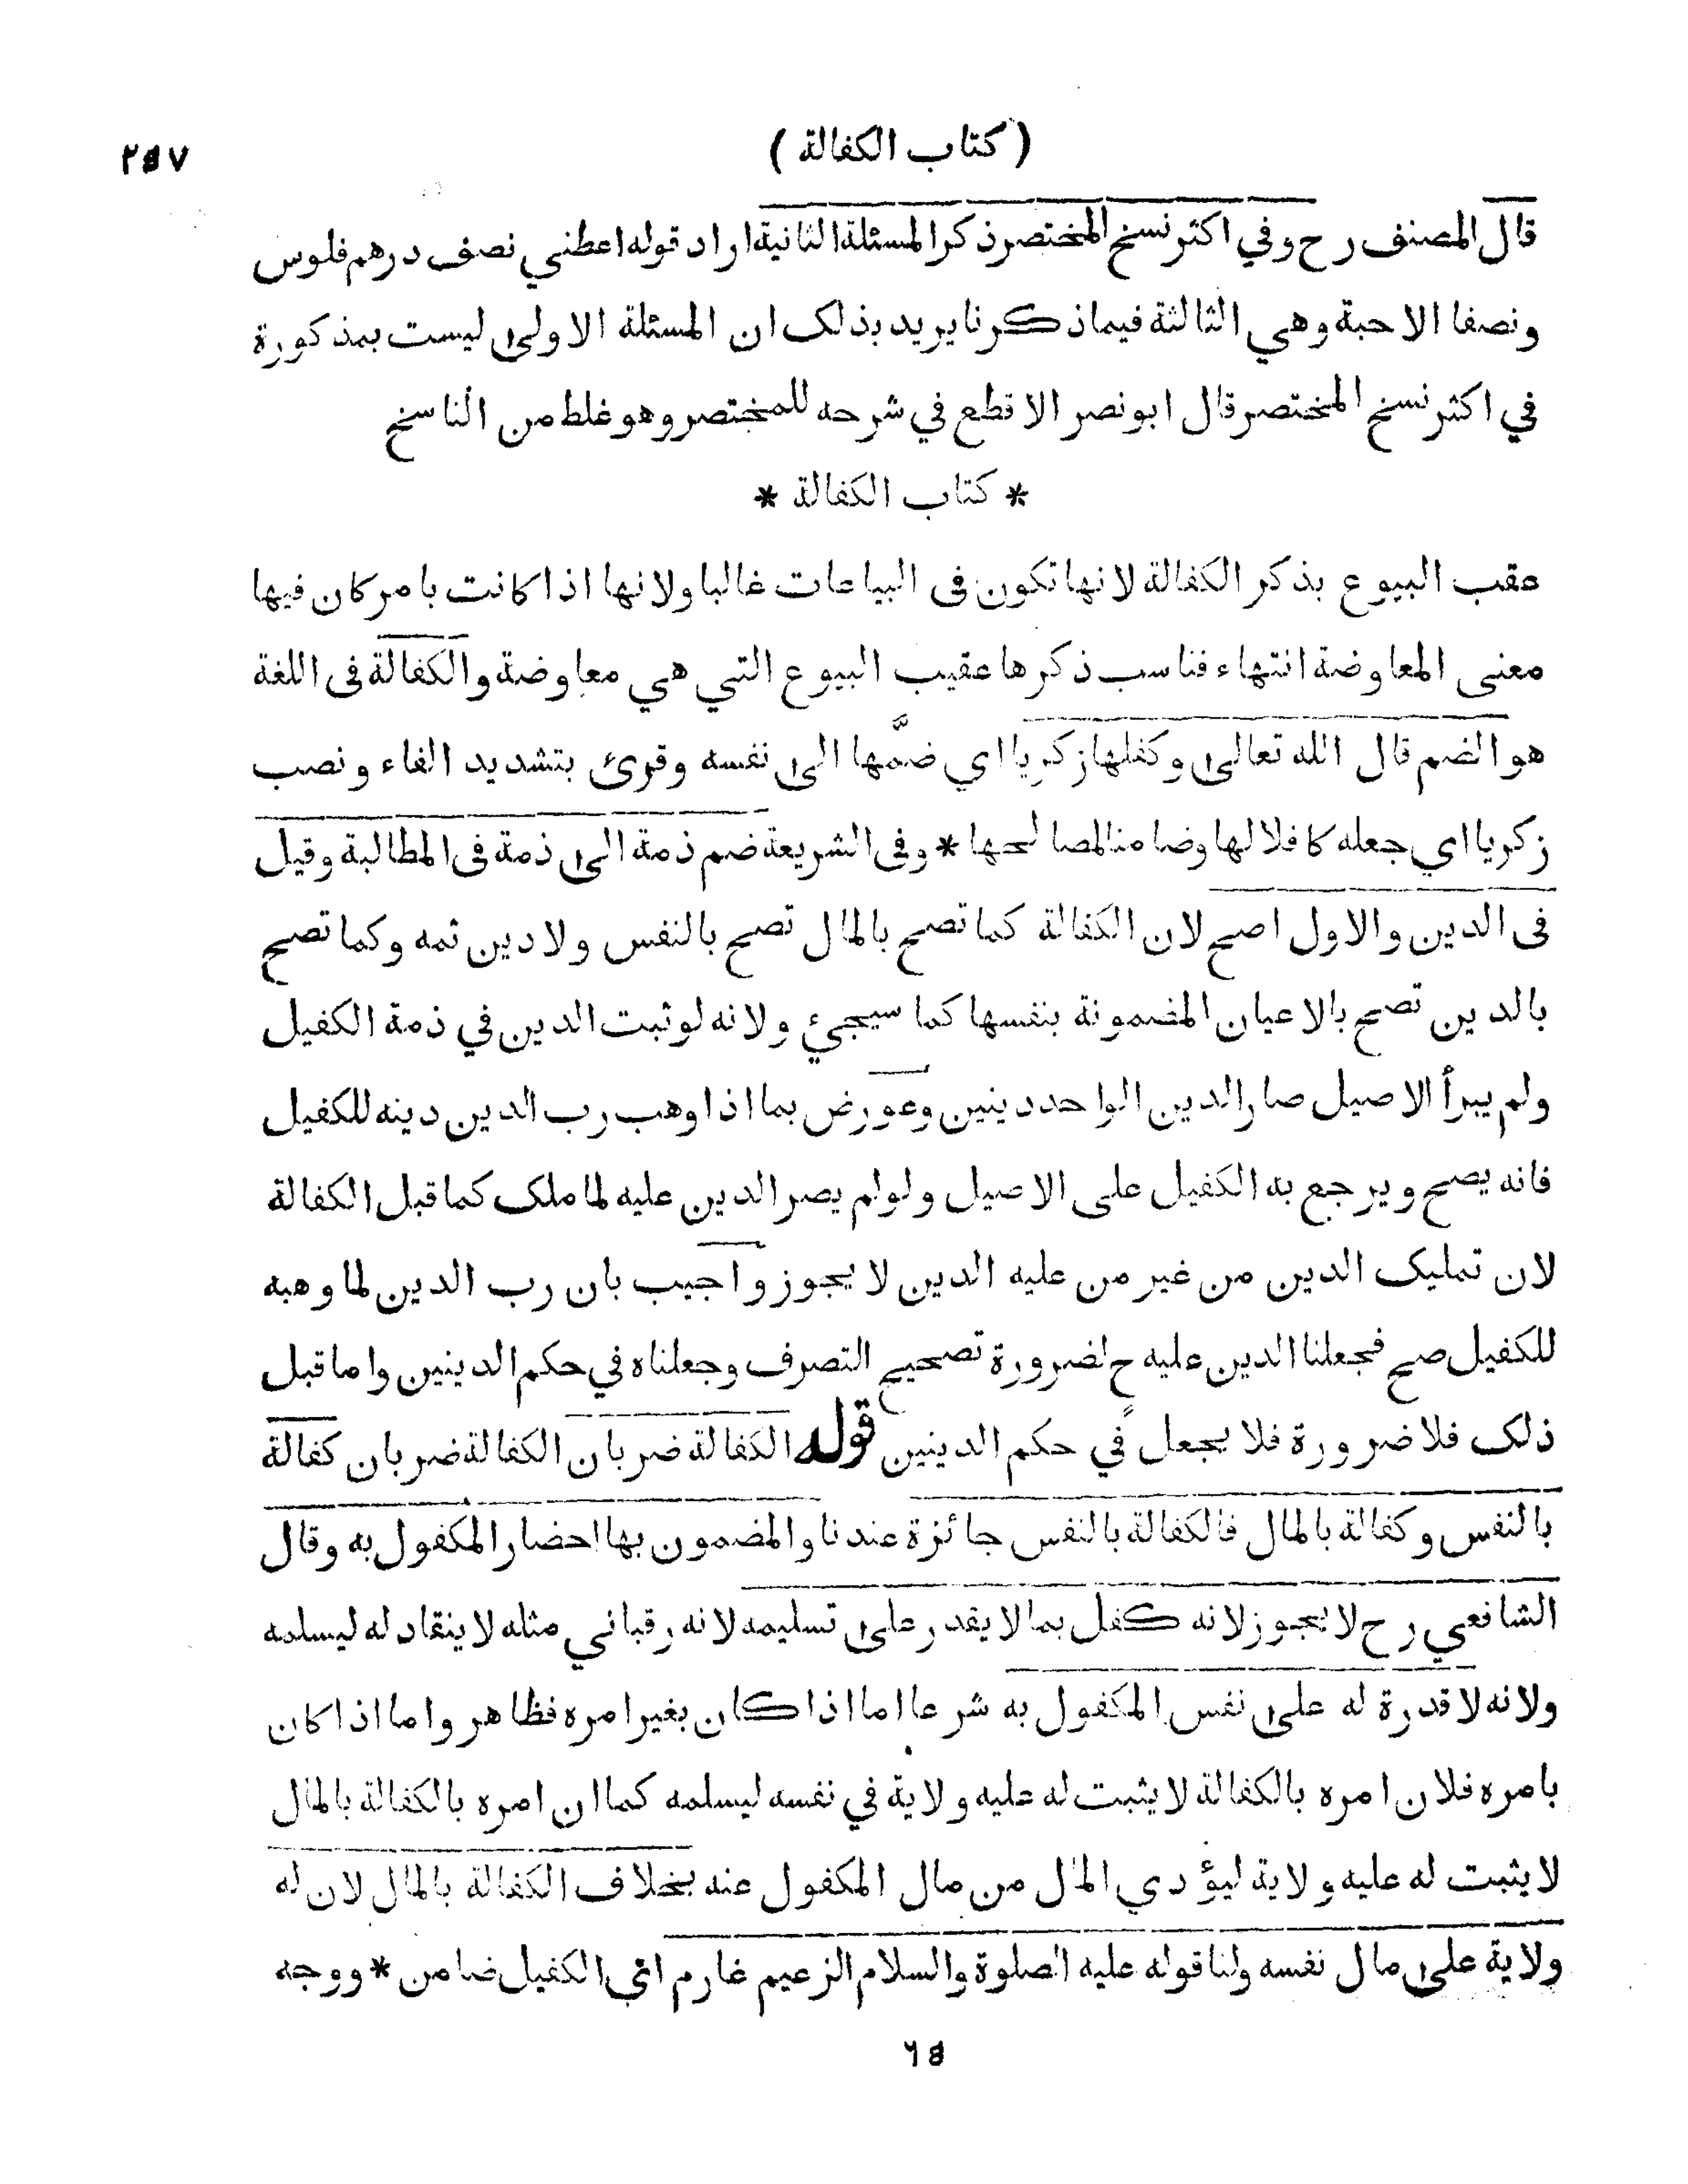 (كتاب الكفالة) ٢٥٧
قال المصنف رح وفي اكثر نسخ المختصر ذكر المسئلة الثانية اراد قوله اعطني نصف درهم فلوس
ونصفا الا حبة وهي الثالثة فيما ذكرنا يريد بذلك ان المسئلة الاولى ليست بمذكورة
في اكثر نسخ المختصر قال ابو نصر الاقطع في شرحه للمختصر وهو غلط من الناسخ
* كتاب الكفالة *
عقب البيوع بذكر الكفالة لانها تكون فى البياعات غالبا ولانها اذا كانت بامر كان فيها
معنى المعاوضة انتهاء فناسب ذكرها عقيب البيوع التي هي معاوضة والكفالة فى اللغة
هو الضم قال الله تعالى وكفلها زكريا اي ضمَّها الى نفسه وقرئ بتشديد الفاء ونصب
زكريا اي جعله كافلا لها وضامنا لمصالحها * وفى الشريعة ضم ذمة الى ذمة فى المطالبة وقيل
فى الدين والاول اصح لان الكفالة كما تصح بالمال تصح بالنفس ولا دين ثمه وكما تصح
بالدين تصح بالاعيان المضمونة بنفسها كما سيجيء ولانه لو ثبت الدين في ذمة الكفيل
ولم يبرأ الاصيل صار الدين الواحد دينين وعورض بما اذا وهب رب الدين دينه للكفيل
فانه يصح ويرجع به الكفيل على الاصيل ولو لم يصر الدين عليه لما ملك كما قبل الكفالة
لان تمليك الدين من غير من عليه الدين لا يجوز واجيب بان رب الدين لما وهبه
للكفيل صح فجعلنا الدين عليه ح لضرورة تصحيح التصرف وجعلناه في حكم الدينين واما قبل
ذلك فلا ضرورة فلا يجعل في حكم الدينين قوله الكفالة ضربان الكفالة ضربان كفالة
بالنفس وكفالة بالمال فالكفالة بالنفس جائزة عندنا والمضمون بها احضار المكفول به وقال
الشافعي رح لا يجوز لانه كفل بما لا يقدر على تسليمه لانه رقباني مثله لا ينقاد له ليسلمه
ولانه لا قدرة له على نفس المكفول به شرعا اما اذا كان بغير امره فظاهر واما اذا كان
بامره فلان امره بالكفالة لا يثبت له عليه ولاية في نفسه ليسلمه كما ان امره بالكفالة بالمال
لا يثبت له عليه ولاية ليؤدي المال من مال المكفول عنه بخلاف الكفالة بالمال لان له
ولاية على مال نفسه ولنا قوله عليه الصلوة والسلام الزعيم غارم اي الكفيل ضامن * ووجه
٦٥